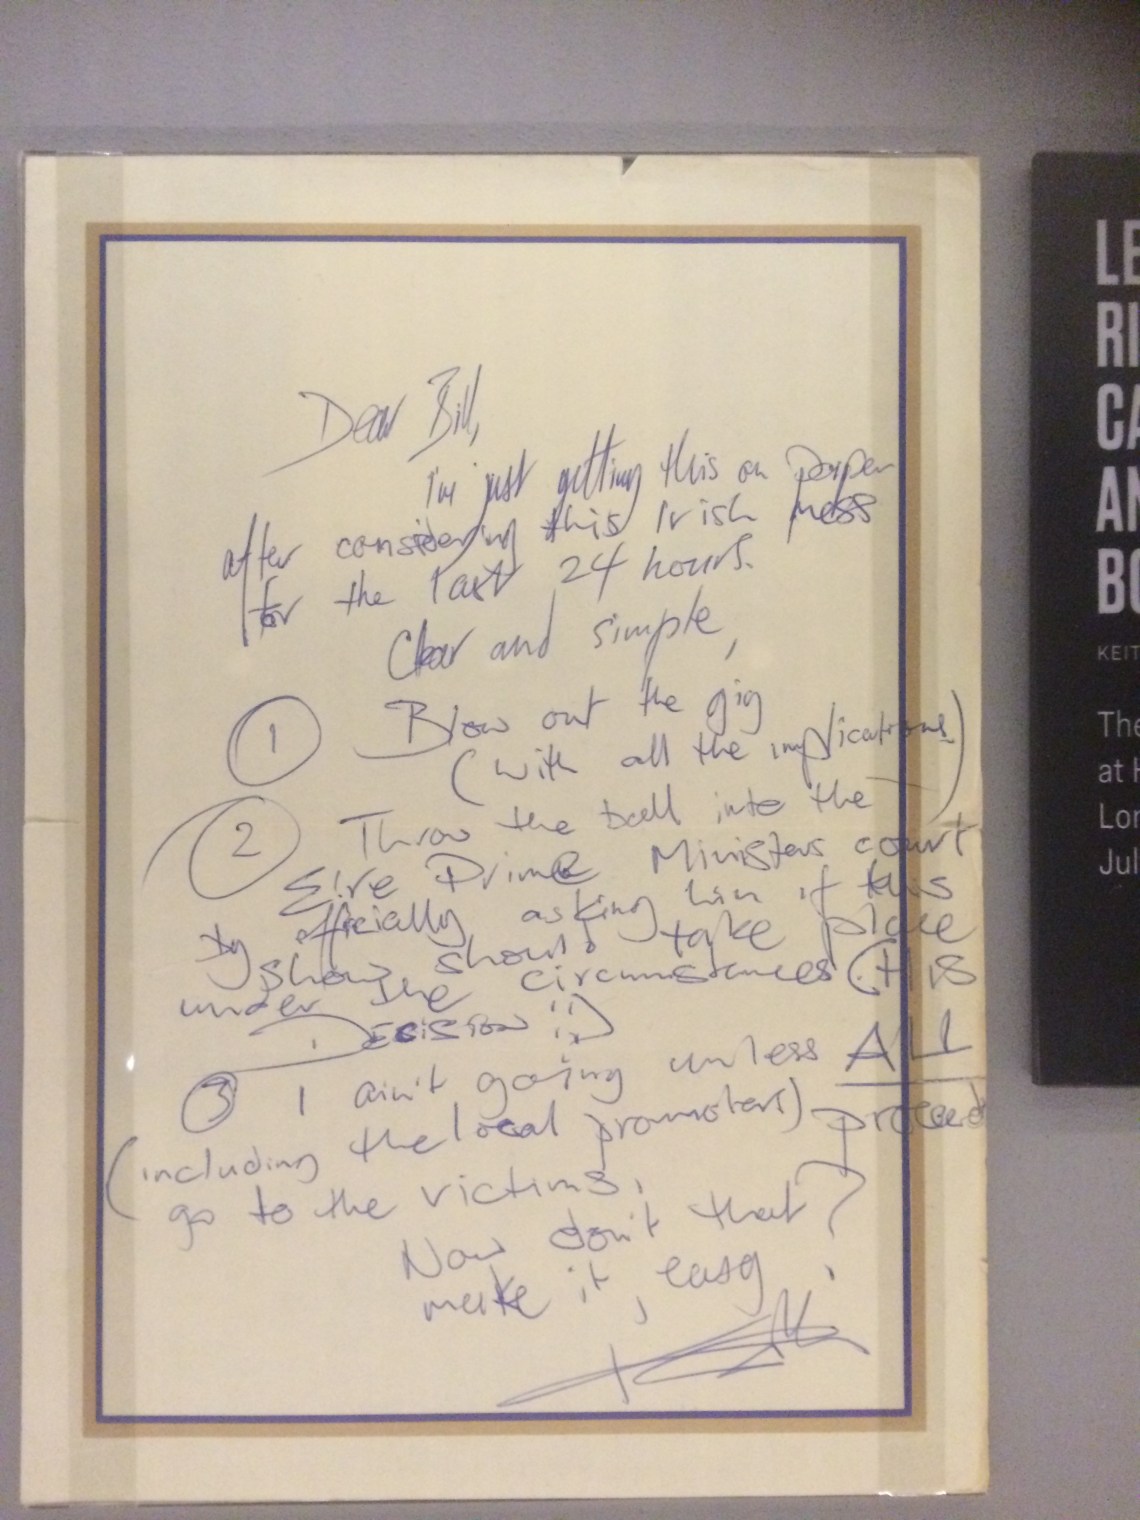 Dear Bill,
I'm just getting this on paper
after considering this Irish mess
for the last 24 hours.
Clear and simple,
1 Blow out the gig
(with all the implications)
2 Throw the ball into the
Eire Prime Ministers court
by officially asking him if this
show should take place
under the circumstances (HIS
Decision!!)
3 I ain't going unless ALL
(including the local promoters) proceeds
go to the victims.
Now don't that
make it, easy?
LE
RI
CA
AN
BO
KEIT
The
at H
Lon
Jul